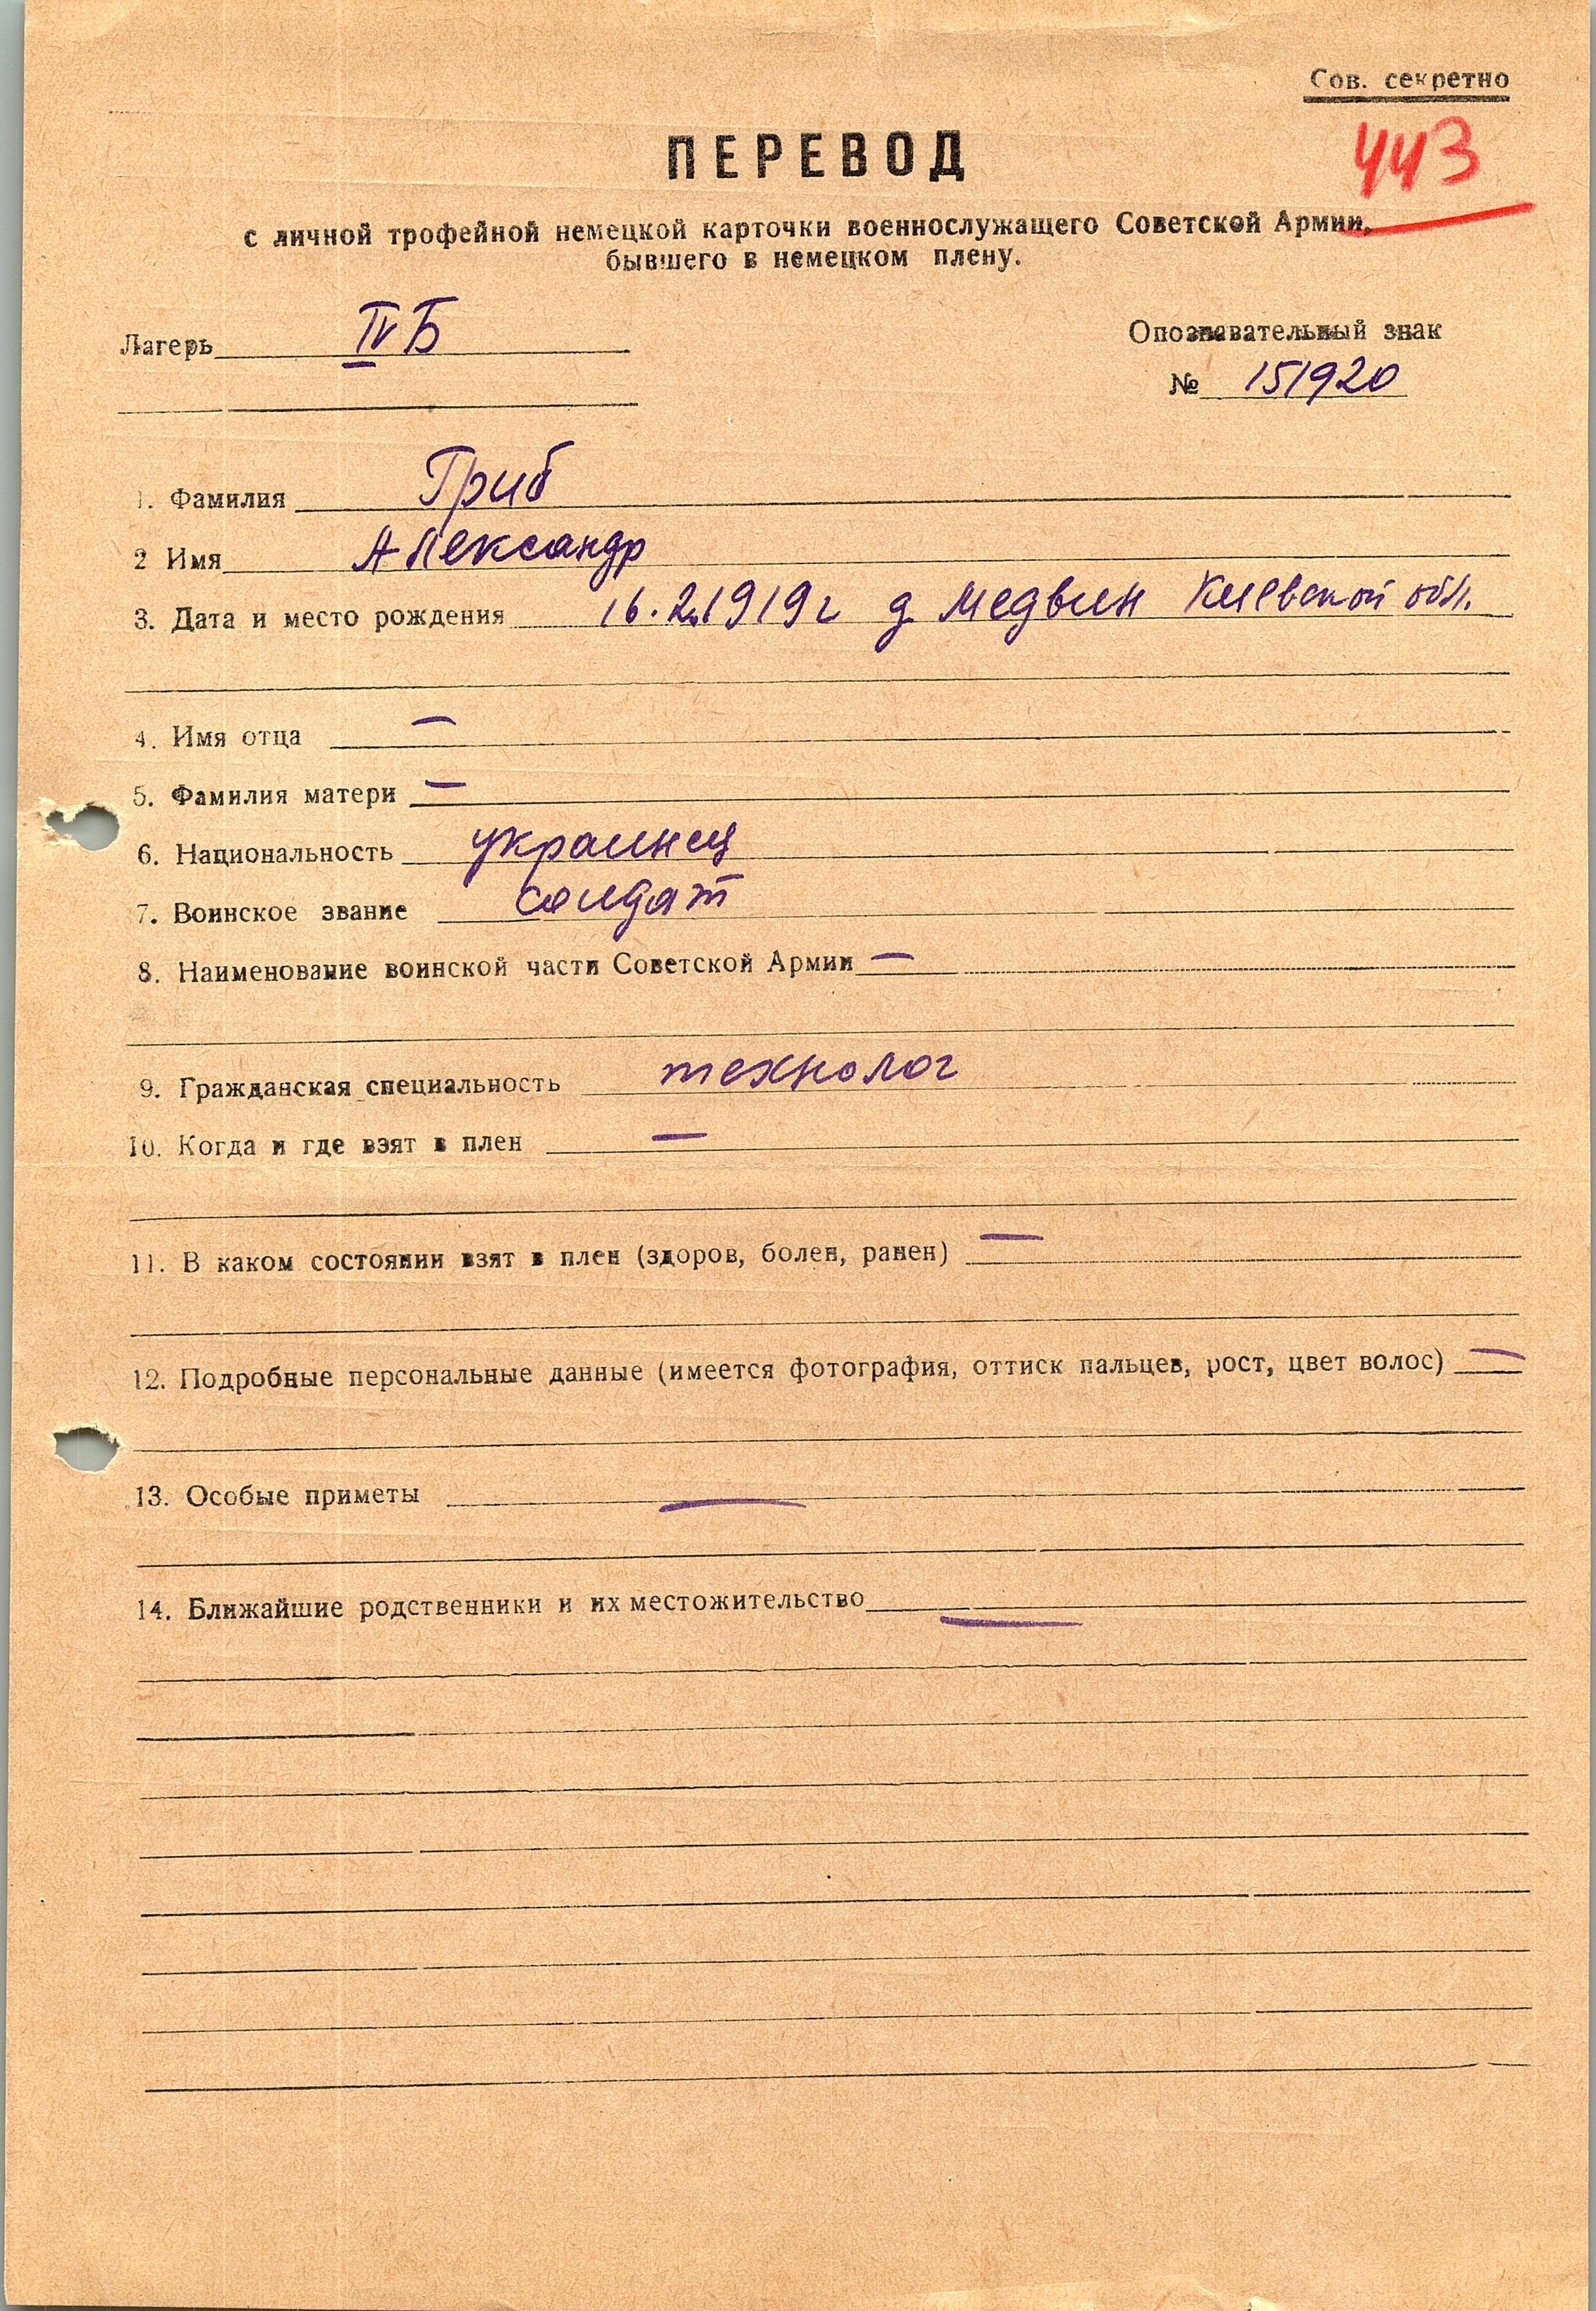 Сов. секретно
443
ПЕРЕВОД
с личной трофейной немецкой карточки военнослужащего Советской Армии,
бывшего в немецком плену.
Лагерь IV Б
Опознавательный знак
№ 151920
1. Фамилия Гриб
2 Имя Александр
3. Дата и место рождения 16.2.1919г д. Медвин Киевской обл.
4. Имя отца —
5. Фамилия матери —
6. Национальность украинец
7. Воинское звание солдат
8. Наименование воинской части Советской Армии —
9. Гражданская специальность технолог
10. Когда и где взят в плен —
11. В каком состоянии взят в плен (здоров, болен, ранен) —
12. Подробные персональные данные (имеется фотография, оттиск пальцев, рост, цвет волос) —
13. Особые приметы —
14. Ближайшие родственники и их местожительство —